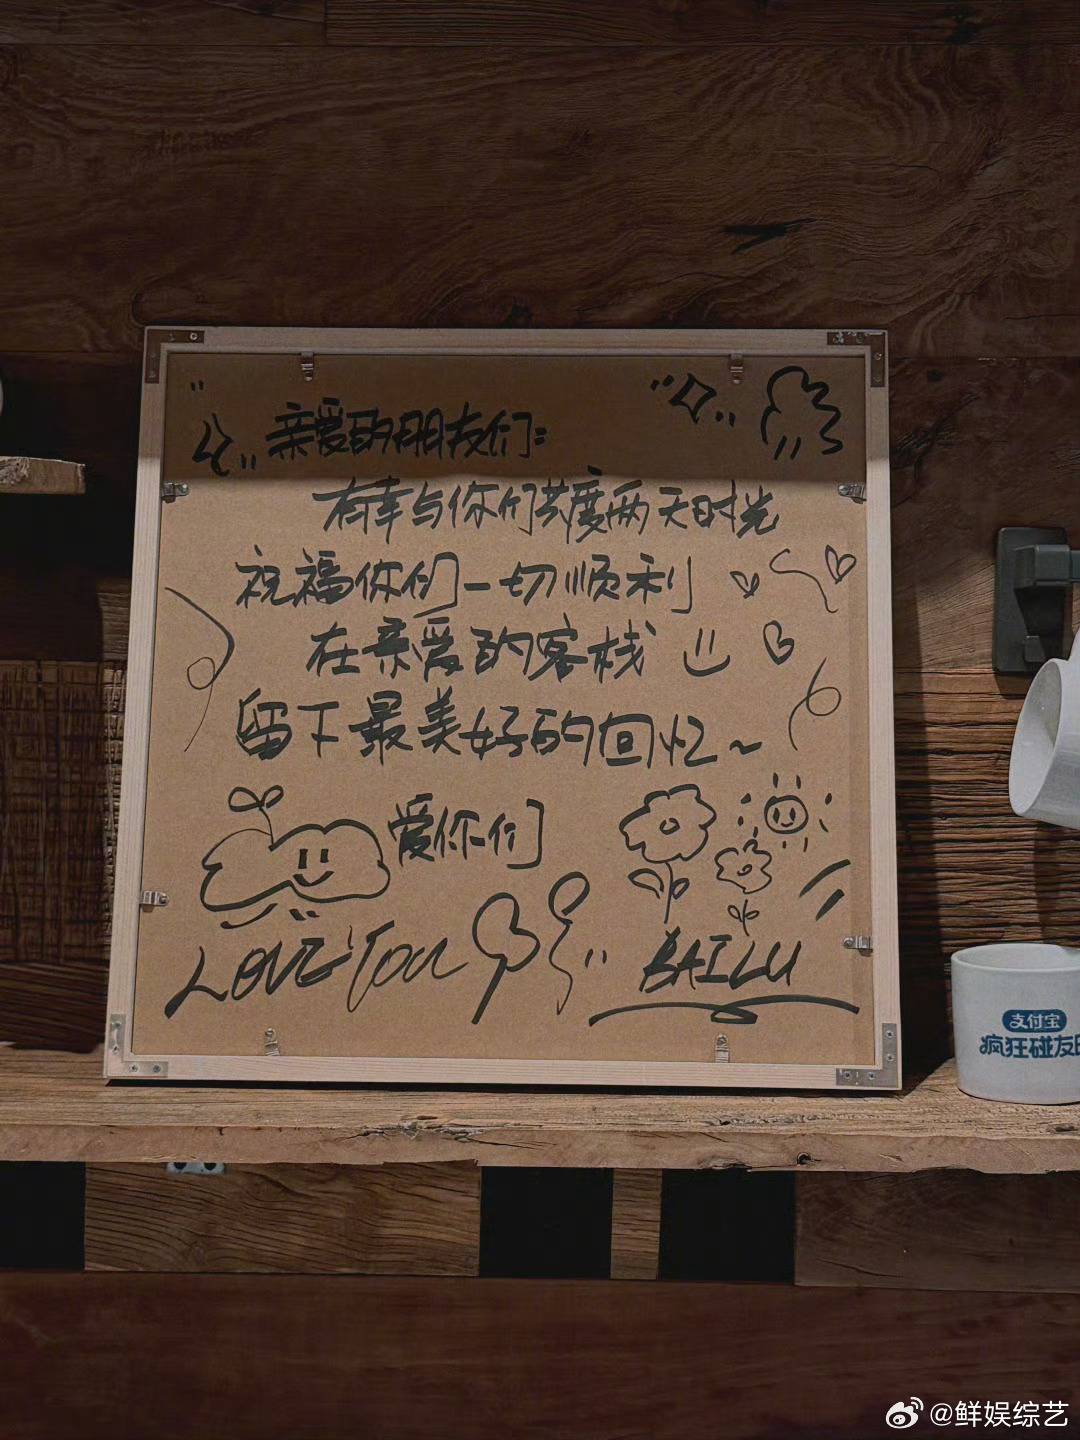 亲爱的朋友们:
有幸与你们共度两天时光
祝福你们一切顺利
在亲爱的客栈
留下最美好的回忆~
爱你们
LOVE You
BAILU
支付宝
疯狂碰友日
@鲜娱综艺